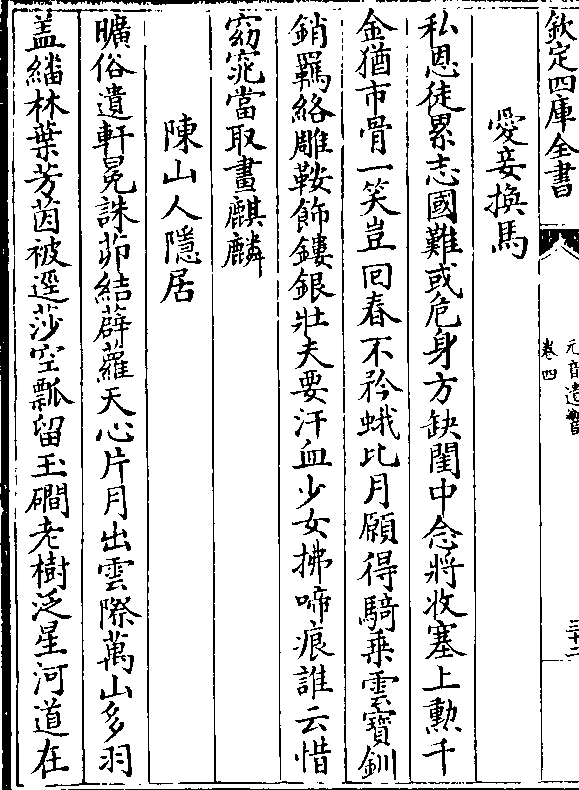 欽定四庫全書
元音遺響
卷四
三十二
愛妾換馬
私恩徒累志國難或危身方缺閨中念將收塞上勳千
金猶市骨一笑豈回春不矜蛾比月願得騎乗雲寶釧
銷羈絡雕鞍飾鏤銀壯夫要汗血少女拂啼痕誰云惜
窈窕當取畫麒麟
陳山人隱居
曠俗遺軒冕誅茆結薜蘿天心片月出雲際萬山多羽
盖繙林葉芳茵被逕莎空瓢留玉磵老樹泛星河道在